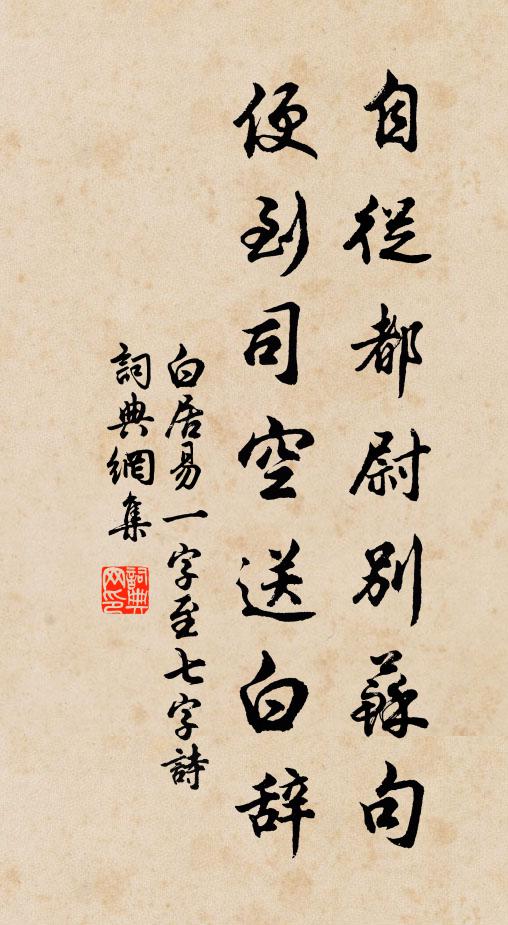 自從都尉別蘇句
便到司空送白辞
白居易一字至七字詩
詞典網集
詞典網印